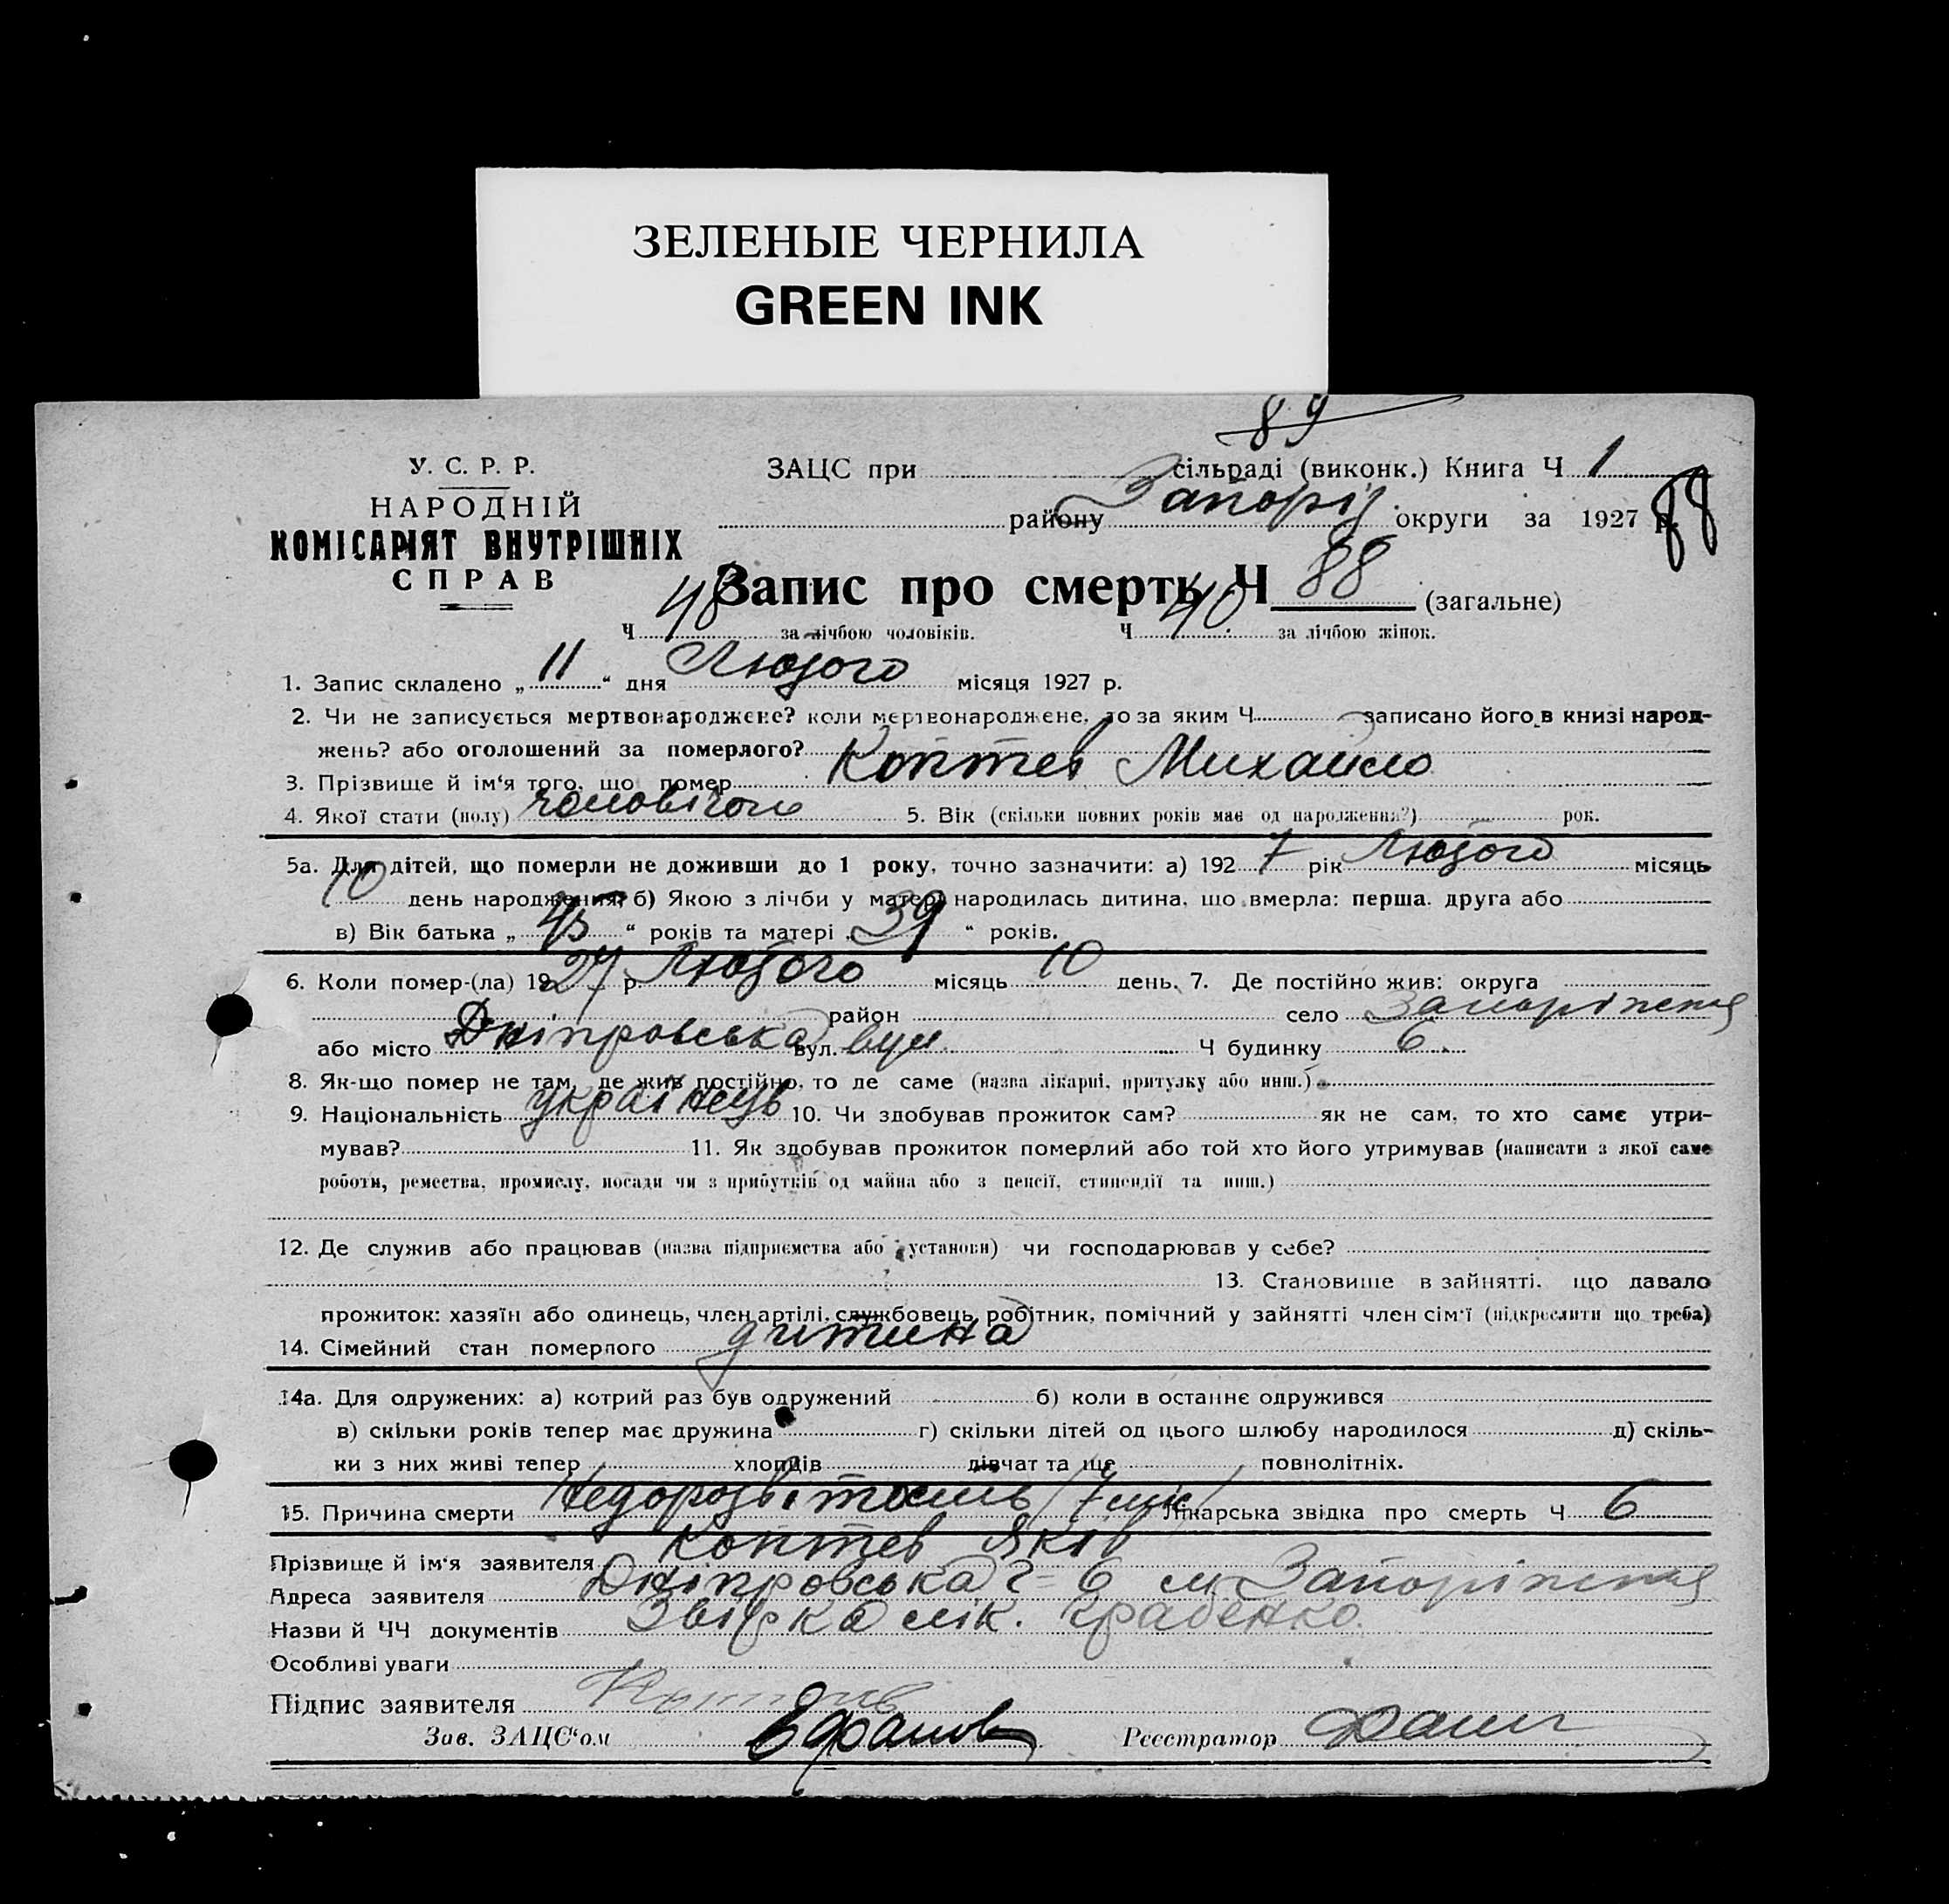 ЗЕЛЕНЫЕ ЧЕРНИЛА
GREEN INK
89
У. С. Р. Р.
НАРОДНІЙ
КОМІСАРІЯТ ВНУТРІШНІХ
СПРАВ
ЗАЦС при сільраді (виконк.) Книга Ч 1
району Запоріз. округи за 1927 р. 88
Запис про смерть Ч 88 (загальне)
Ч 48 за лічбою чоловіків. Ч 40 за лічбою жінок.
1. Запис складено „ 11 “ дня Лютого місяця 1927 р.
2. Чи не записується мертвонароджене? коли мертвонароджене, то за яким Ч записано його в книзі народ-
жень? або оголошений за померлого?
3. Прізвище й ім‘я того, що помер Коптев Михайло
4. Якої стати (полу) чоловічої 5. Вік (скільки повних років має од народження?) рок.
5а. Для дітей, що померли не доживши до 1 року, точно зазначити: а) 192 7 рік Лютого місяць
10 день народження; б) Якою з лічби у матері народилась дитина, що вмерла: перша. друга або
в) Вік батька „ 45 “ років та матері „ 39 “ років.
6. Коли помер-(ла) 1927 р. Лютого місяць 10 день. 7. Де постійно жив: округа
район село Запоріжжя
або місто Дніпровська вул. вул Ч будинку 6.
8. Як-що помер не там, де жив постійно, то де саме (назва лікарні, притулку або инш.)
9. Національність українець 10. Чи здобував прожиток сам? як не сам, то хто саме утри-
мував? 11. Як здобував прожиток померлий або той хто його утримував (написати з якої саме
роботи, ремества, промислу, посади чи з прибутків од майна або з пенсії, стипендії та инш.)
12. Де служив або працював (назва підприємства або установи) чи господарював у себе?
13. Становище в зайнятті. що давало
прожиток: хазяїн або одинець, член артілі, службовець, робітник, помічний у зайнятті член сім‘ї (підкреслити що треба)
14. Сімейний стан померлого дитина
14а. Для одружених: а) котрий раз був одружений б) коли в останнє одружився
в) скільки років тепер має дружина г) скільки дітей од цього шлюбу народилося д) скіль-
ки з них живі тепер хлопців дівчат та ще повнолітніх.
15. Причина смерти Недорозвітость /7 міс/ Лікарська звідка про смерть Ч 6
Прізвище й ім‘я заявителя Коптев Яків
Адреса заявителя Дніпровська 6 м Запоріжжя
Назви й ЧЧ документів Звідка лік. Кравенко.
Особливі уваги
Підпис заявителя
Зав. ЗАЦС‘ом Реєстратор